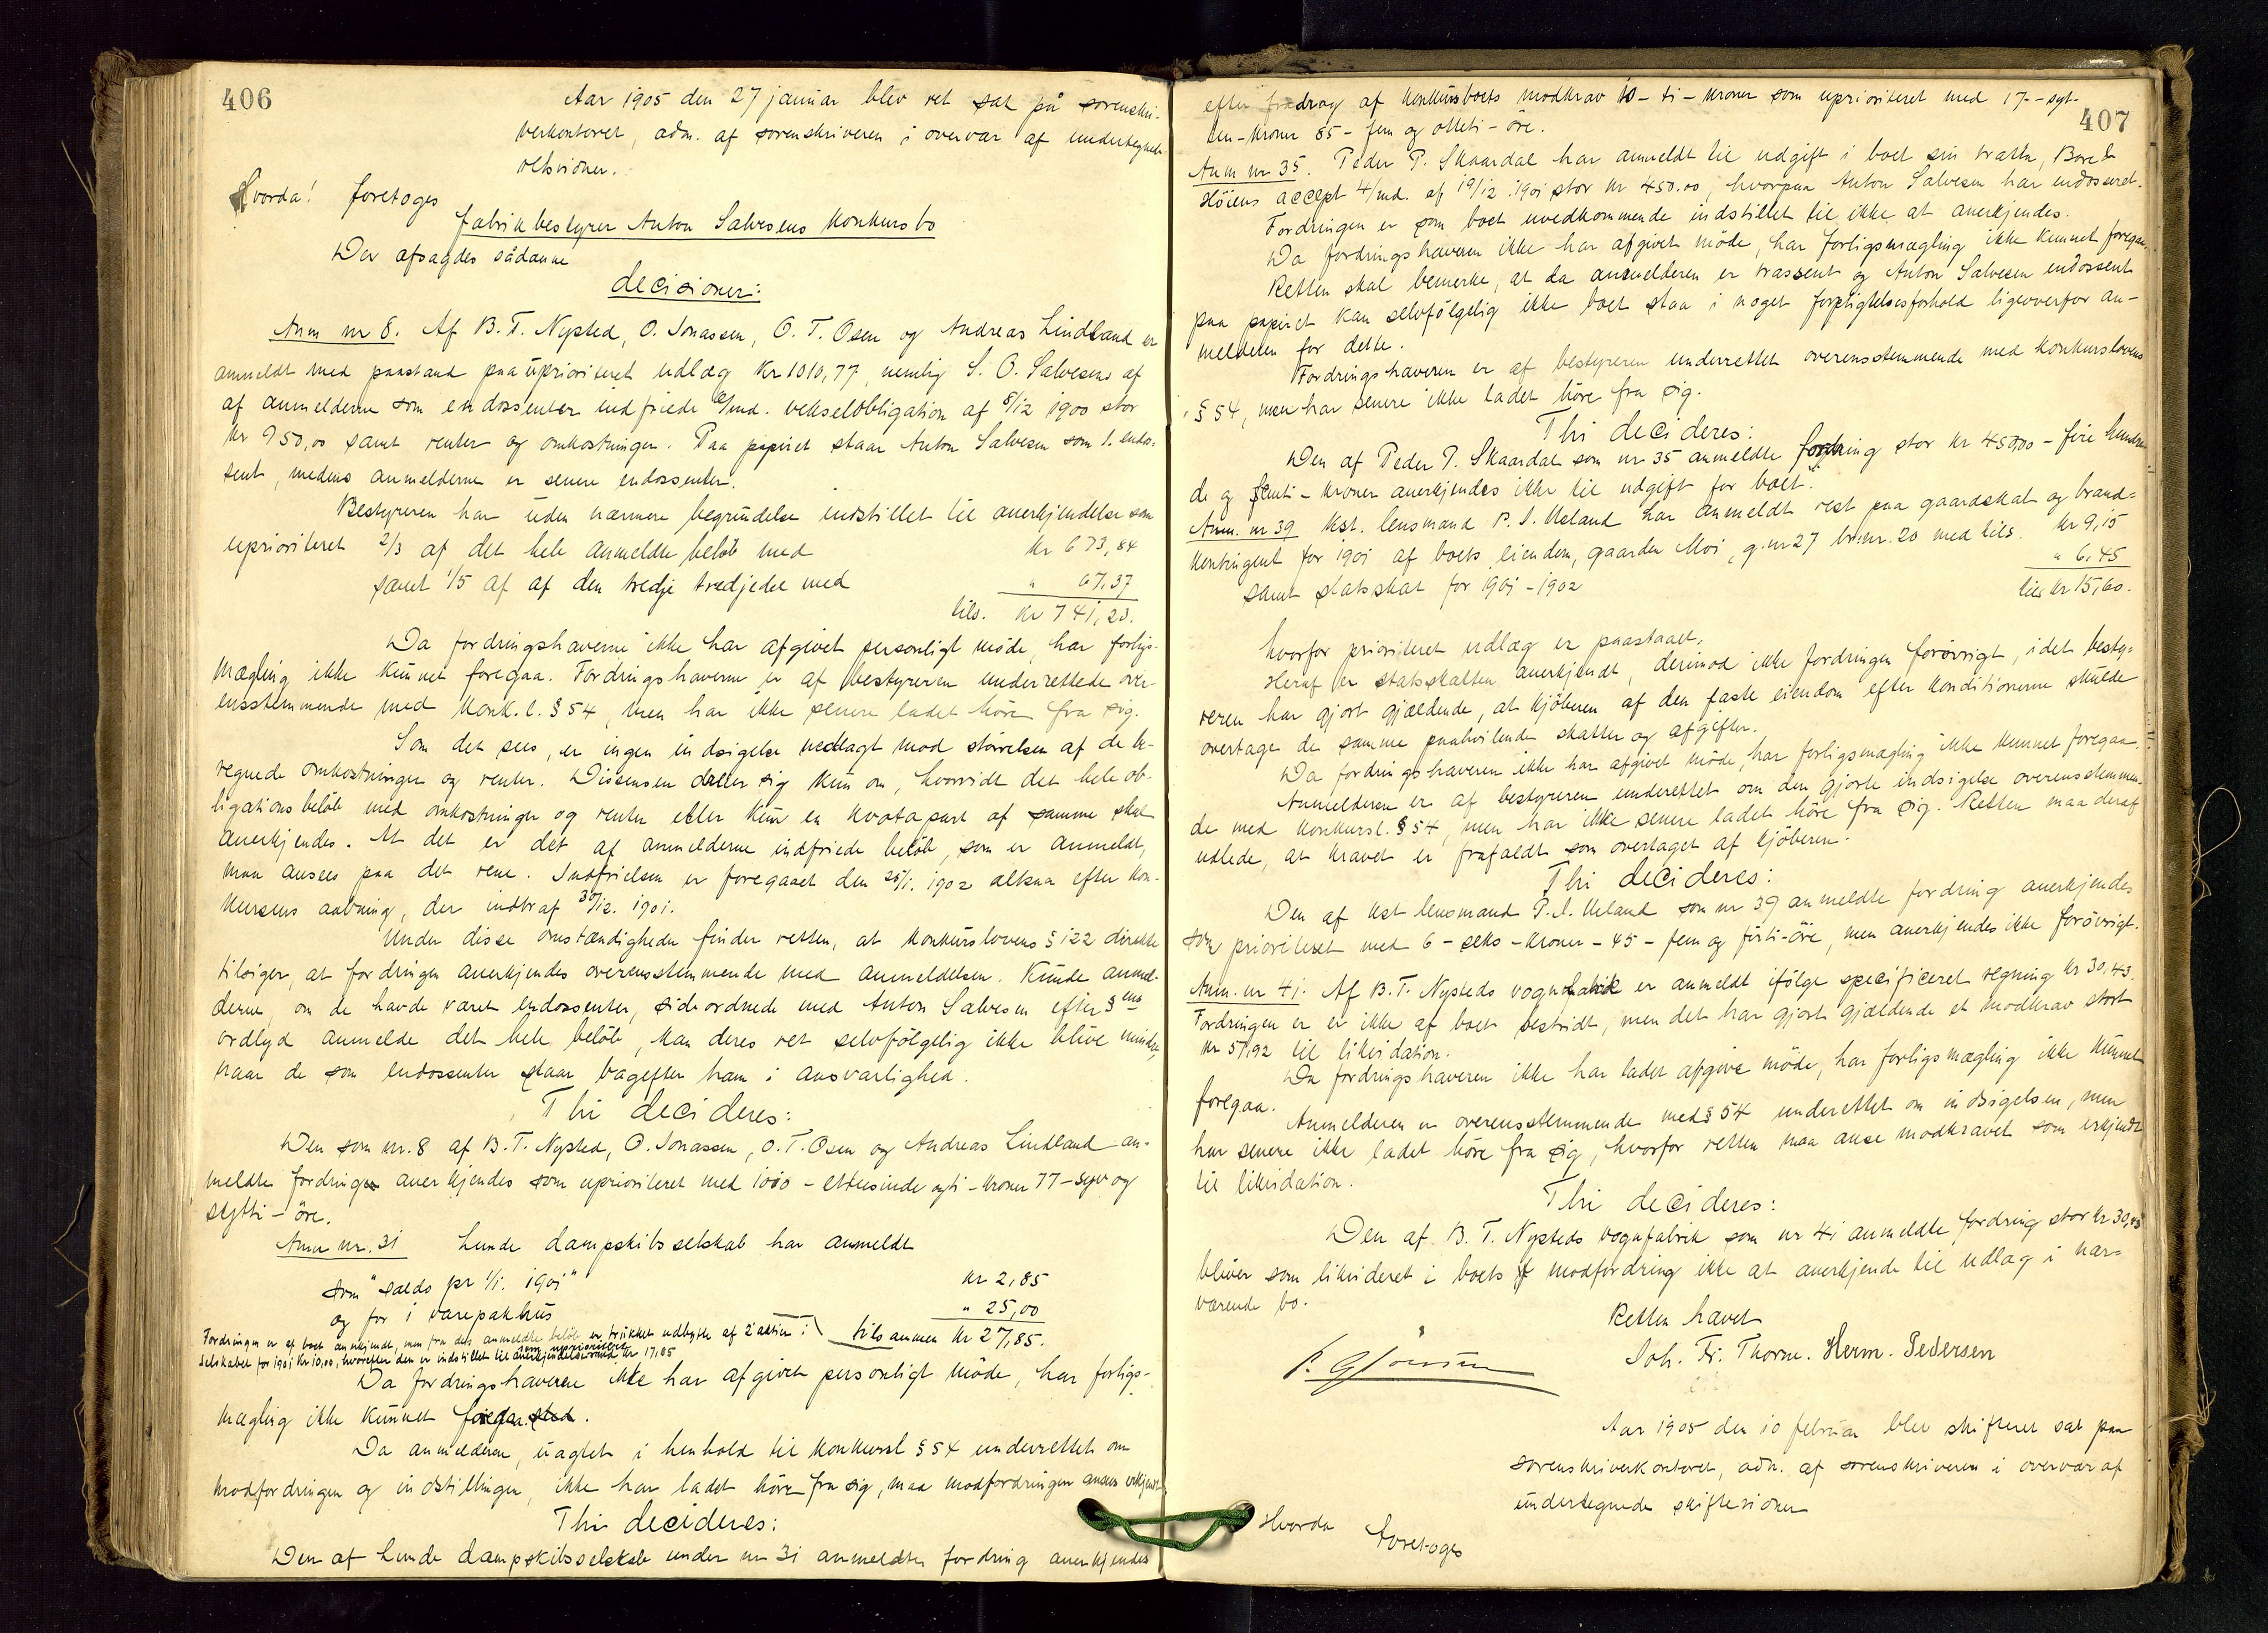 406
Aar 1905 den 27 januar blev ret sat på sorenskri-
verkontoret, adm. af sorenskriveren i overvær af undertegnede
retsvidner.
Hvorda! foretoges
fabrikbestyrer Anton Salvesens konkursbo
Der afsagdes sådanne
decisioner:
Anm nr 8. Af B. T. Nysted, O. Jonassen, O. T. Osen og Andreas Lindland er
anmeldt med paastand paa uprioriteret udlæg Kr 1010,77, nemlig S. O. Salvesens af
af anmelderne som endossenter indfriede 6/md. vekselobligation af 8/12 1900 stor
Kr 950,00 samt renter og omkostninger. Paa papiret staar Anton Salvesen som 1. endos-
sent, medens anmelderne er senere endossenter.
Bestyreren har uden nærmere begrundelse indstillet til anerkjendelse som
uprioriteret 2/3 af det hele anmeldte beløb med kr 673,84
samt 1/5 af af den tredje tredjedel med " 67,37
tils. Kr 741,23.
Da fordringshaverne ikke har afgivet personligt møde, har forligs-
mægling ikke kunnet foregaa. Fordringshaverne er af bestyreren underrettede over-
ensstemmende med Konk.l. § 54, men har ikke senere ladet høre fra sig.
Som det sees, er ingen indsigelse nedlagt mod størrelsen af de be-
regnede omkostninger og renter. Dissensen dreier sig kun om, hvorvidt det hele ob-
ligationsbeløb med omkostninger og renter eller kun en kvotapart af samme skal
anerkjendes. At det er det af anmelderne indfriede beløb, som er anmeldt,
maa ansees paa det rene. Indfrielsen er foregaaet den 25/1. 1902 altsaa efter kon-
kursens aabning, der indtraf 30/12. 1901.
Under disse omstændigheder finder retten, at konkurslovens § 122 direkte
tilsiger, at fordringen anerkjendes overensstemmende med anmeldelsen. Kunde anmel-
derne, om de havde været endossenter, sideordnede med Anton Salvesen efter §ens
ordlyd anmelde det hele beløb, kan deres ret selvfølgelig ikke blive mindre,
naar de som endossenter staar bagefter ham i ansvarlighed.
Thi decideres:
Den som nr. 8 af B. T. Nysted, O. Jonassen, O. T. Osen og Andreas Lindland an-
meldte fordring anerkjendes som uprioriteret med 1010 - ettusinde og ti - kroner 77 - syv og
sytti - øre.
Anm nr. 31 Lunde dampskibsselskab har anmeldt
som "saldo pr 1/1. 1901" kr 2,85
og for 1 varepakhus " 25,00
tilsammen kr 27,85.
Fordringen er af boet anerkjendt, men fra det anmeldte beløb er trukket udbytte af 2 aktier i
selskabet for 1901 kr 10,00, hvorefter den er indstillet til anerkjendelse som uprioriteret med kr 17,85
Da fordringshaveren ikke har afgivet personligt møde, har forligs-
mægling ikke kunnet foregaa.
Da anmelderen, uagtet i henhold til konkursl § 54 underrettet om
modfordringen og indstillingen, ikke har ladet høre fra sig, maa modfordringen ansees erkjendt.
Thi decideres:
Den af Lunde dampskibsselskab under nr 31 anmeldte fordring anerkjendes
407
efter fradrag af konkursboets modkrav 10 - ti - kroner som uprioriteret med 17 - syt-
ten - kroner 85 - fem og otteti - øre.
Anm nr 35. Peder P. Skaardal har anmeldt til udgift i boet sin tratta, Bore &
Höiens accept 4/md. af 19/12. 1901 stor kr 450.00, hvorpaa Anton Salvesen har endosseret.
Fordringen er som boet uvedkommende indstillet til ikke at anerkjendes.
Da fordringshaveren ikke har afgivet møde, har forligsmægling ikke kunnet foregaa.
Retten skal bemerke, at da anmelderen er trassent og Anton Salvesen endossent
paa papiret kan selvfølgelig ikke boet staa i noget forpligtelsesforhold ligeoverfor an-
melderen for dette.
Fordringshaveren er af bestyreren underrettet overensstemmende med konkurslovens
§ 54, men har senere ikke ladet høre fra sig.
Thi decideres:
Den af Peder P. Skaardal som nr 35 anmeldte fordring stor kr 450,00 - fire hundre-
de og femti - kroner anerkjendes ikke til udgift for boet.
Anm. nr 39 Kst. lensmand P. I. Ueland har anmeldt rest paa gaardskat og brand-
kontingent for 1901 af boets eiendom, gaarden Moi, g.nr 27 br.nr. 20 med tils. kr 9,15
samt statsskat for 1901 - 1902 " 6,45
tils kr 15,60.
hvorfor prioriteret udlæg er paastaaet.
Heraf er statsskatten anerkjendt, derimod ikke fordringen forøvrigt, idet besty-
reren har gjort gjældende, at kjøberen af den faste eiendom efter konditionerne skulde
overtage de samme paahvilende skatter og afgifter.
Da fordringshaveren ikke har afgivet møde, har forligsmægling ikke kunnet foregaa.
Anmelderen er af bestyreren underrettet om den gjorte indsigelse overensstemmen-
de med konkursl. § 54, men har ikke senere ladet høre fra sig. Retten maa deraf
udlede, at kravet er frafaldt som overtaget af kjøberen.
Thi decideres:
Den af kst lensmand P. I. Ueland som nr 39 anmeldte fordring anerkjendes
som prioriteret med 6 - seks - kroner - 45 - fem og firti - øre, men anerkjendes ikke forøvrigt.
Anm. nr 41. Af B. T. Nysteds vognfabrik er anmeldt ifølge specificeret regning kr 30,43.
Fordringen er er ikke af boet bestridt, men det har gjort gjældende et modkrav stort
kr 57,92 til likvidation.
Da fordringshaveren ikke har ladet afgive møde, har forligsmægling ikke kunnet
foregaa.
Anmelderen er overensstemmende med § 54 underrettet om indsigelsen, men
har senere ikke ladet høre fra sig, hvorfor retten maa anse modkravet som erkjendt
til likvidation.
Thi decideres:
Den af B. T. Nysteds vognfabrik som nr 41 anmeldte fordring stor kr 30,43
bliver som likvideret i boets modfordring ikke at anerkjende til udlæg i nær-
værende bo.
Retten hævet
Joh. Fr. Thorne. Herm. Pedersen
Aar 1905 den 10 februar blev skifteret sat paa
sorenskriverkontoret, adm. af sorenskriveren i overvær af
undertegnede skiftevidner
Hvorda
foretoges